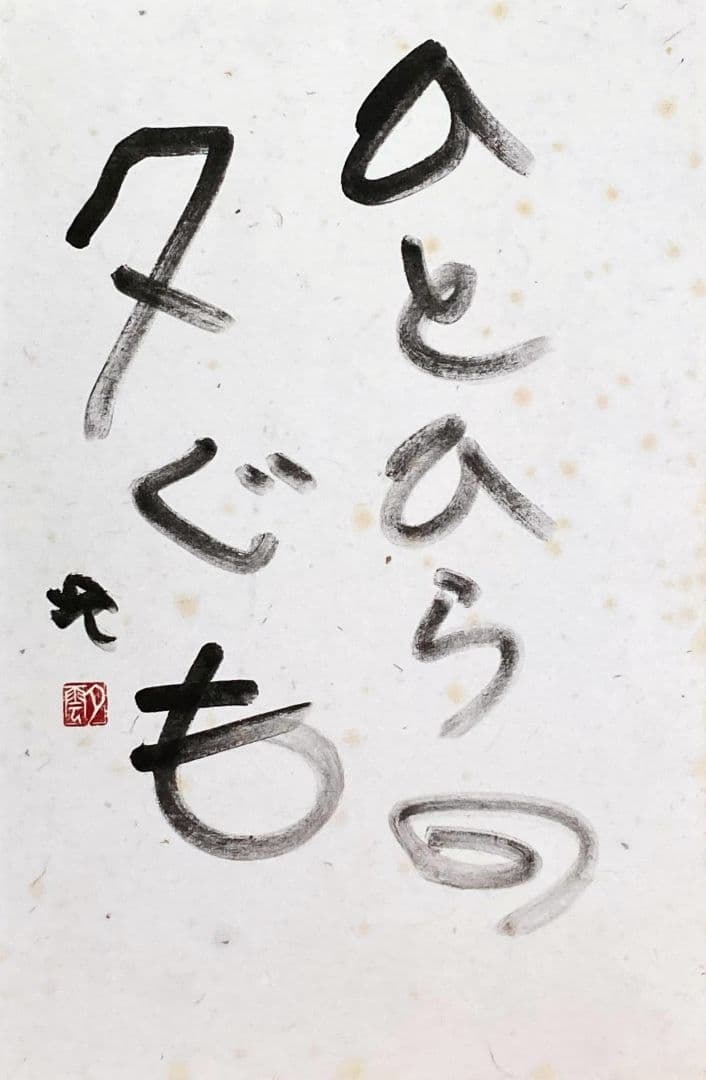 ひとひらの
夕ぐも
夕雲